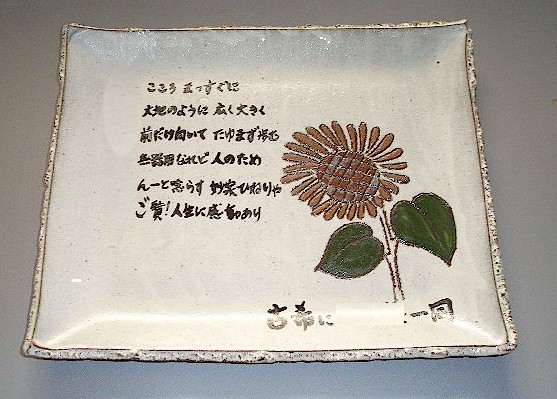 こころ まっすぐに
大地のように 広く大きく
前だけ向いて たゆまず歩む
無器用なれど 人のため
んーと唸らす 妙案ひねりや
ご賛!人生に感動あり
古希に 一同